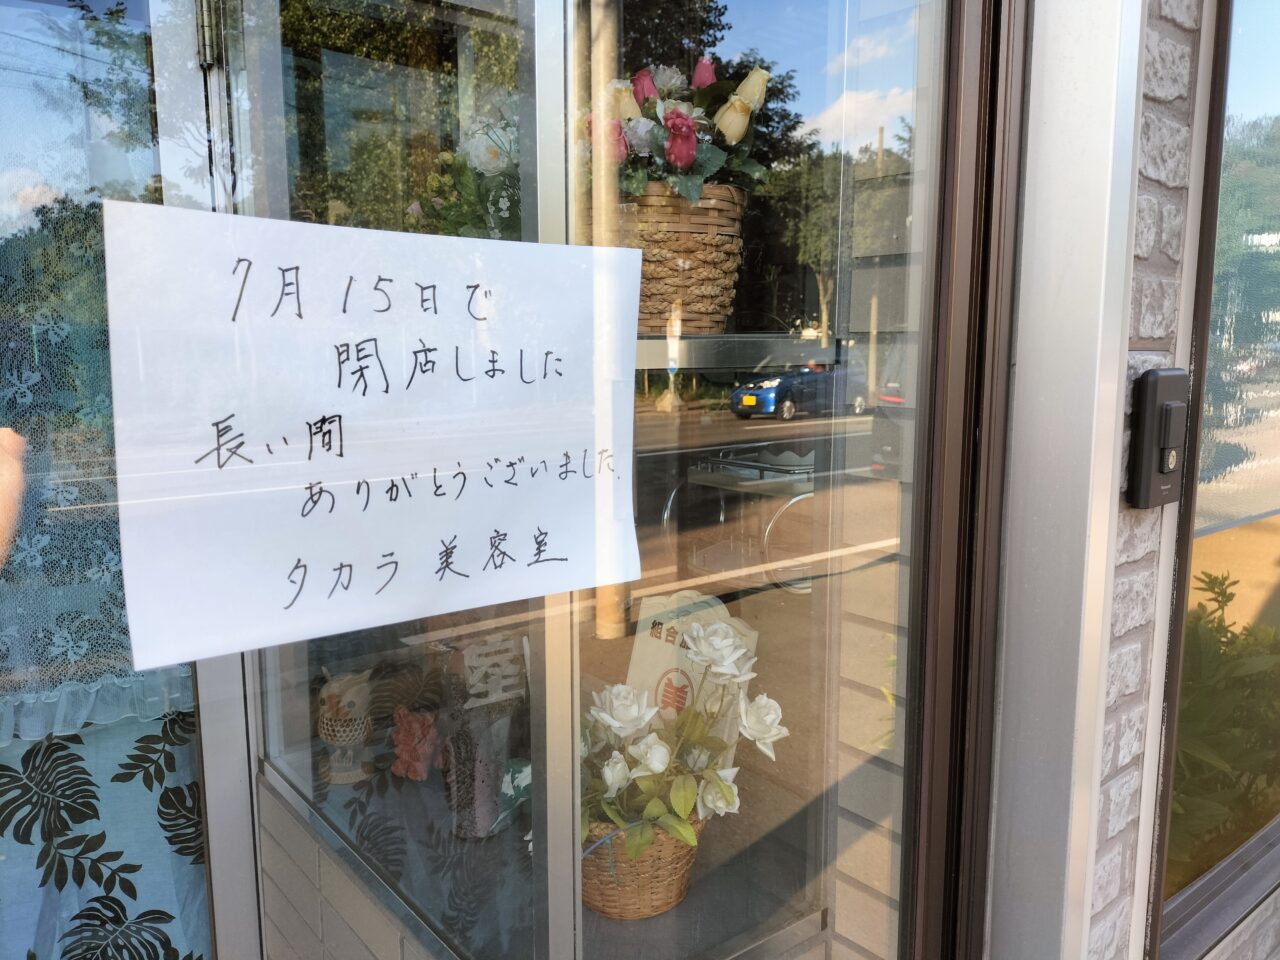 7月15日で
閉店しました
長い間
ありがとうございました.
タカラ美容室
組合
美
室